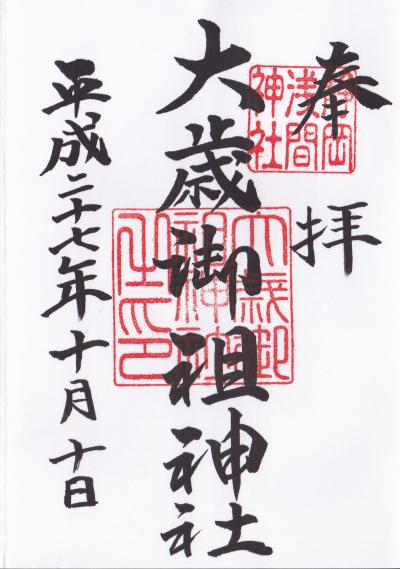 奉拝
静岡
浅間
神社
大歳御祖神社
大歳御
祖神社
之印
平成二十七年十月十日